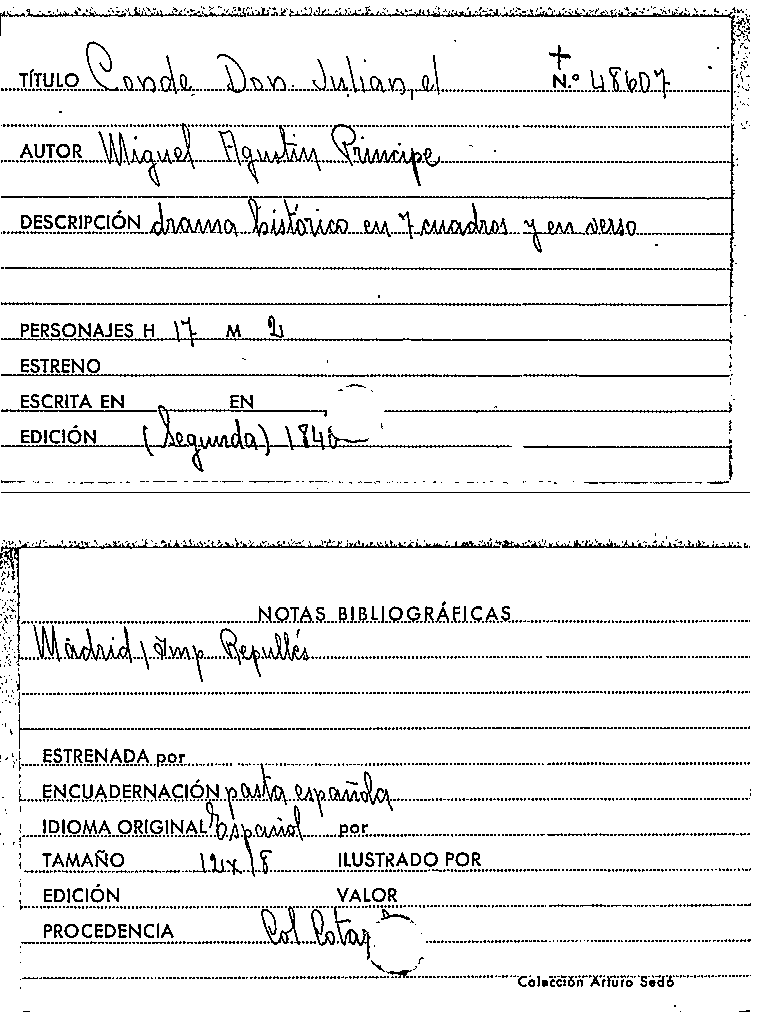 TÍTULO Conde Don Julian, el N.º 48607
AUTOR Miguel Agustin Principe
DESCRIPCIÓN drama histórico en 7 cuadros y en verso
PERSONAJES H 17 M 2
ESTRENO
ESCRITA EN EN
EDICIÓN (Segunda) 1840
NOTAS BIBLIOGRÁFICAS
Madrid / Imp Repullés
ESTRENADA por
ENCUADERNACIÓN pasta española
IDIOMA ORIGINAL Español por
TAMAÑO ILUSTRADO POR
EDICIÓN VALOR
PROCEDENCIA Col
Colección Arturo Sedó